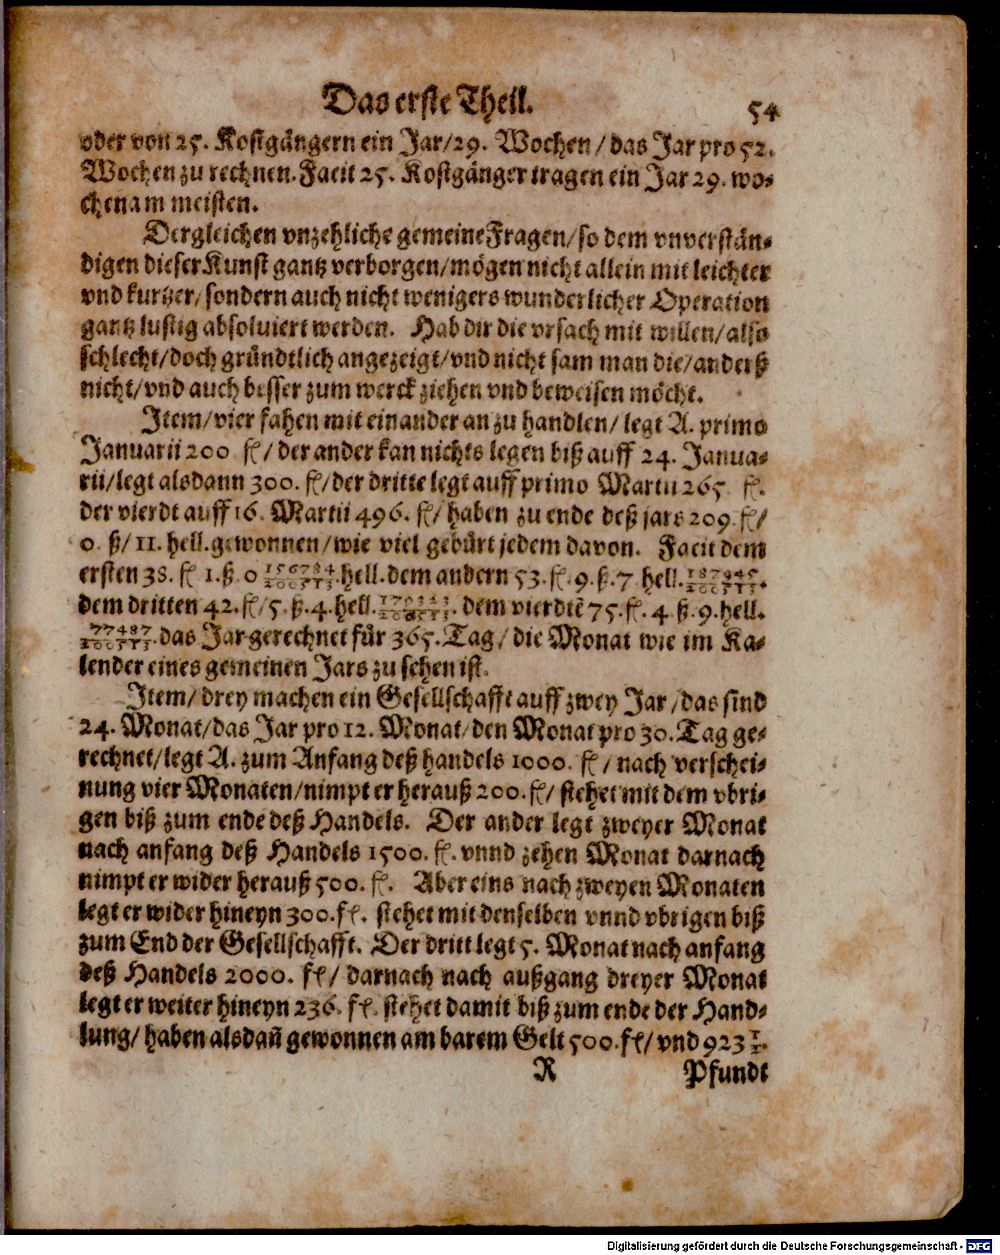 Das erste Theil. 54
oder von 25. Kostgängern ein Jar/29. Wochen/das Jar pro 52.
Wochen zu rechnen. Facit 25. Kostgänger tragen ein Jar 29. wo-
chen am meisten.
Dergleichen vnzehliche gemeine Fragen/so dem vnverstän-
digen dieser Kunst gantz verborgen/mögen nicht allein mit leichter
vnd kurtzer/sondern auch nicht wenigers wunderlicher Operation
gantz lustig absolviert werden. Hab dir die vrsach mit willen/also
schlecht/doch gründtlich angezeigt/vnd nicht sam man die/anderß
nicht/vnd auch besser zum werck ziehen vnd beweisen möcht.
Item/vier fahen mit einander an zu handlen/legt A. primo
Januarii 200 fl/der ander kan nichts legen biß auff 24. Janua-
rii/legt alsdann 300. fl/der dritte legt auff primo Martii 265 fl.
der vierdt auff 16. Martii 496. fl/haben zu ende deß jars 209. fl/
0. ß/11. hell. gewonnen/wie viel gebürt jedem davon. Facit dem
ersten 38. fl 1. ß. 0 156784/200513. hell. dem andern 53. fl. 9. ß. 7 hell. 187945/200513.
dem dritten 42. fl/5. ß. 4. hell. 179323/200513. dem vierdtẽ 75. fl. 4. ß. 9. hell.
77487/200513. das Jar gerechnet für 365. Tag/die Monat wie im Ka-
lender eines gemeinen Jars zu sehen ist.
Item/drey machen ein Gesellschafft auff zwey Jar/das sind
24. Monat/das Jar pro 12. Monat/den Monat pro 30. Tag ge-
rechnet/legt A. zum Anfang deß handels 1000. fl/nach verschei-
nung vier Monaten/nimpt er herauß 200. fl/stehet mit dem vbri-
gen biß zum ende deß Handels. Der ander legt zweyer Monat
nach anfang deß Handels 1500. fl. vnnd zehen Monat darnach
nimpt er wider herauß 500. fl. Aber eins nach zweyen Monaten
legt er wider hineyn 300. fl. stehet mit denselben vnnd vbrigen biß
zum End der Gesellschafft. Der dritt legt 5. Monat nach anfang
deß Handels 2000. fl/darnach nach außgang dreyer Monat
legt er weiter hineyn 236. fl. stehet damit biß zum ende der Hand-
lung/haben alsdañ gewonnen am barem Gelt 500. fl/vnd 923 1/2.
R Pfundt
Digitalisierung gefördert durch die Deutsche Forschungsgemeinschaft - DFG